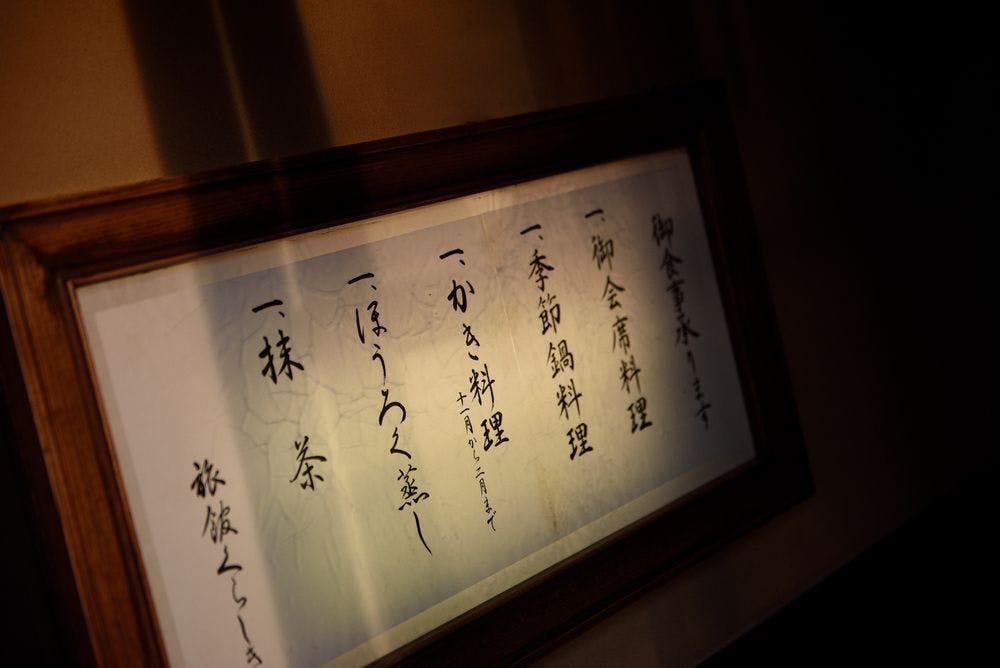 御食事承ります
一、御会席料理
一、季節鍋料理
一、かき料理
十一月から二月まで
一、ほうろく蒸し
一、抹茶
旅館くらしき